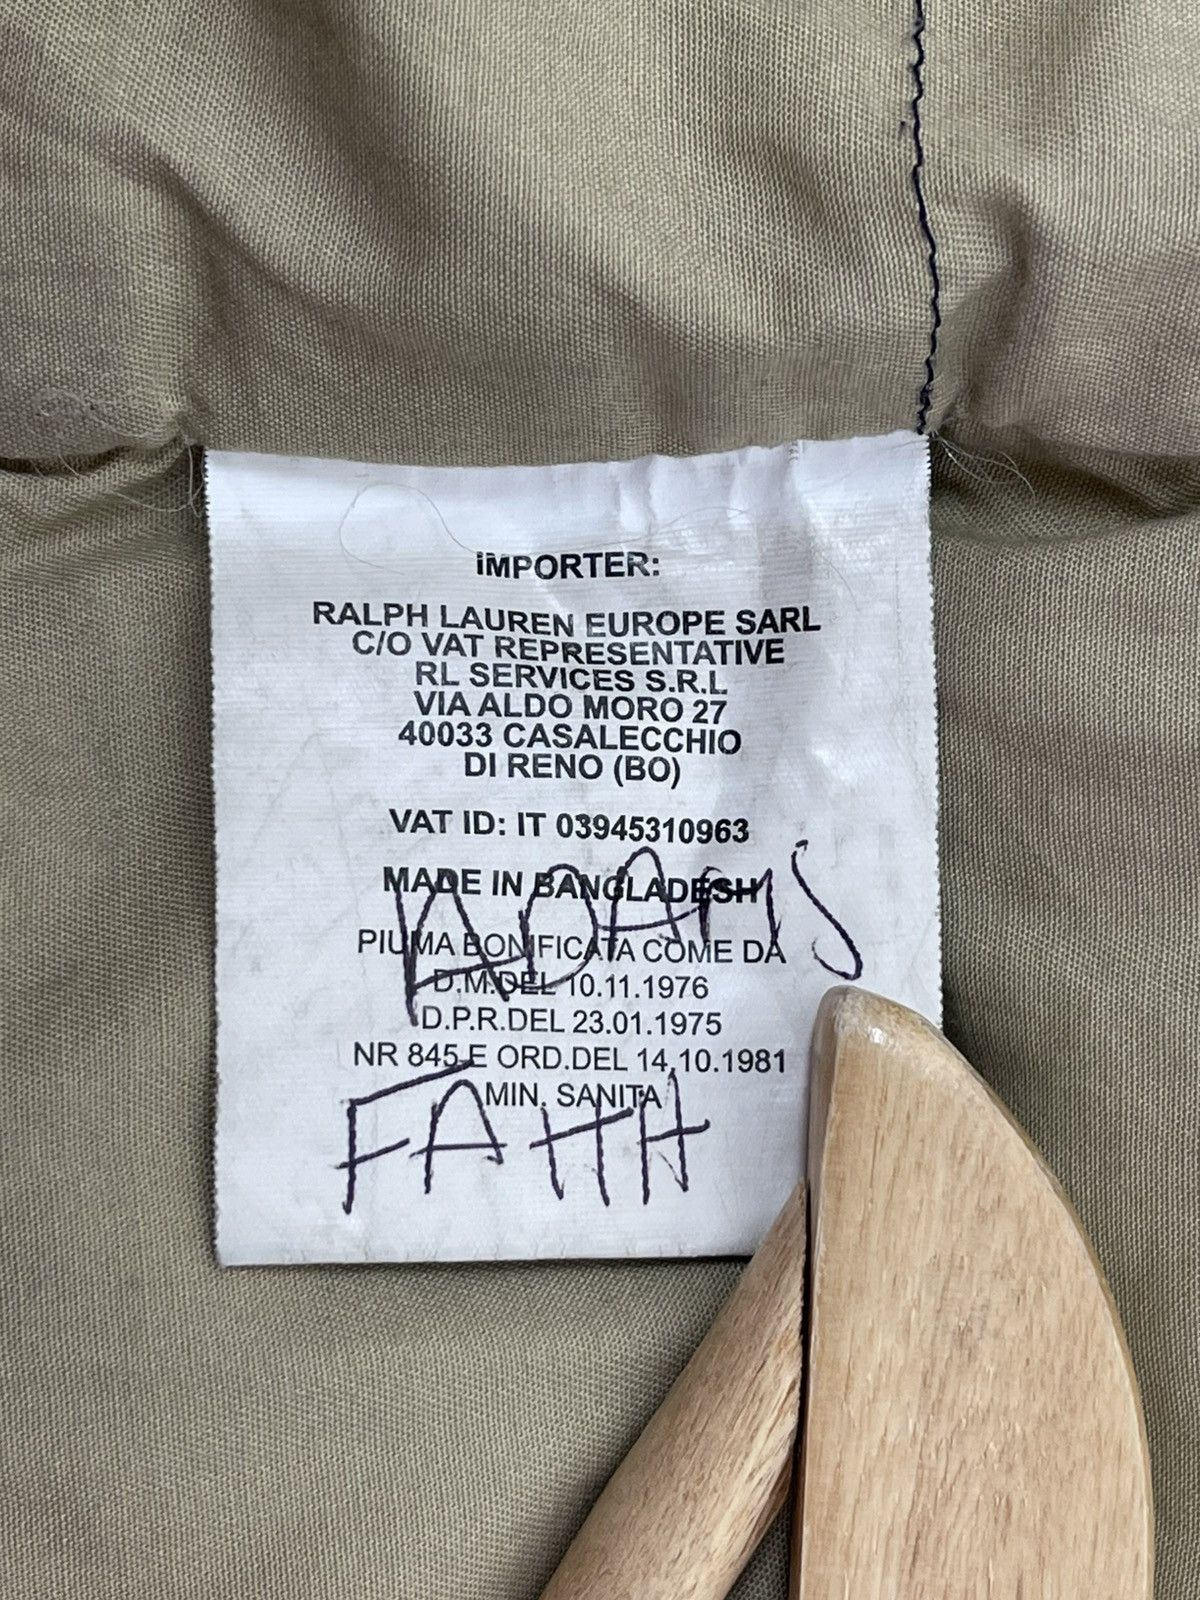 IMPORTER:
RALPH LAUREN EUROPE SARL
C/O VAT REPRESENTATIVE
RL SERVICES S.R.L
VIA ALDO MORO 27
40033 CASALECCHIO
DI RENO (BO)
VAT ID: IT 03945310963
MADE IN BANGLADESH
ADAMS
PIUMA BONIFICATA COME DA
D.M.DEL 10.11.1976
D.P.R.DEL 23.01.1975
NR 845 E ORD.DEL 14.10.1981
MIN. SANITA
FAITH